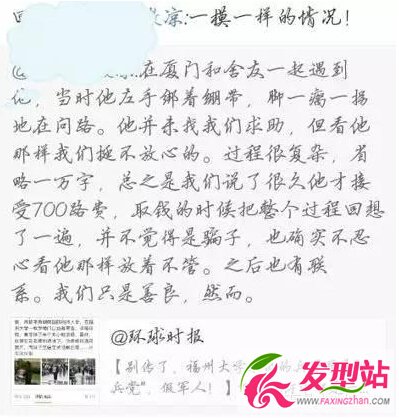 凉:一模一样的情况!
在厦门和舍友一起遇到
他,当时他左手绑着绷带,脚一瘸一拐
地在问路。他并未找我们求助,但看他
那样我们挺不放心的。过程很复杂,省
略一万字,总之是我们说了很久他才接
受700路费,取钱的时候把整个过程回想
了一遍,并不觉得是骗子,也确实不忍
心看他那样放着不管。之后也有联
系。我们只是善良,然而。
@环球时报
【别传了,福州大学
兵党”,假军人!
发型站
www.faxingzhan.com